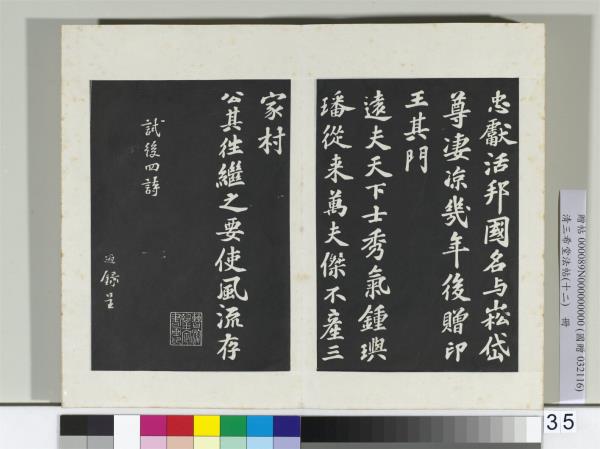 忠獻活邦國名与崧岱
尊凄凉幾年後贈印
王其門
遠夫天下士秀氣鍾璵
璠從来萬夫傑不產三
家村
公其往繼之要使風流存
試後四詩
錄呈
贈帖 000089N000000000 (國贈 032116)
清三希堂法帖(十二) 冊
35